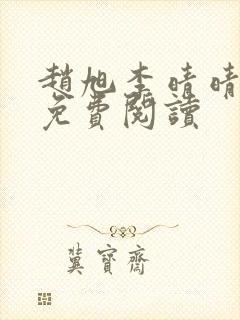 趙旭李晴晴
免費閱讀
冀寶齋